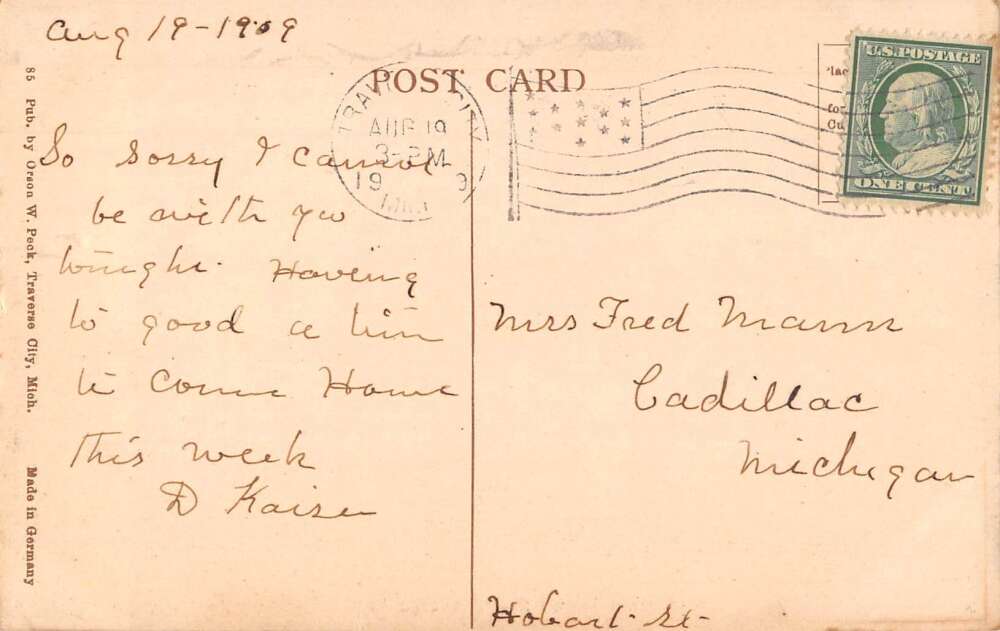 Aug 19-1909
POST CARD
TRAV CITY
AUG 19
3-PM
19 9
MICH
U.S. POSTAGE
ONE CENT
So sorry I cannot
be with you
tonight. Having
to good a time
to come Home
this week
D Kaiser
Mrs Fred Mann
Cadillac
Michigan
Hobart St-
85 Pub. by Orson W. Peck, Traverse City, Mich. Made in Germany